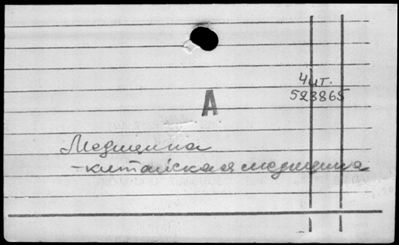 Чит.
523865
А
Медицина
-китайская медицина